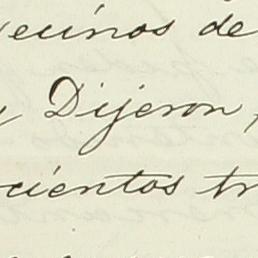 vecinos de
y Dijeron,
cientos tr